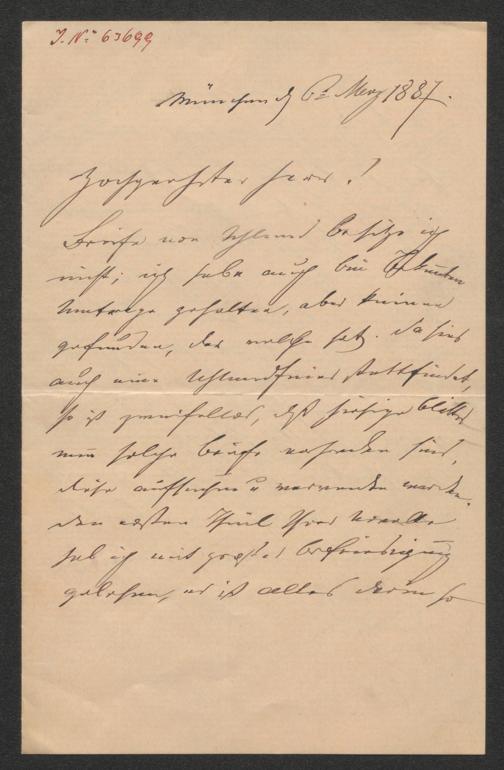 J. N: 63699
München d 6. Merz 1887.
Hochgeehrter Herr!
Briefe von Uhland besitze ich
nicht; ich habe auch bei Bekannten
Umfrage gehalten, aber keinen
gefunden, der welche hat. Da hier
auch eine Uhlandfeier stattfindet,
so ist zweifellos, daß hiesige Blätter
wenn solche Briefe vorhanden sind,
diese aufsuchen u verwenden werden.
Den ersten Theil Ihrer Novelle
hab ich mit großer Befriedigung
gelesen, es ist alles darin so